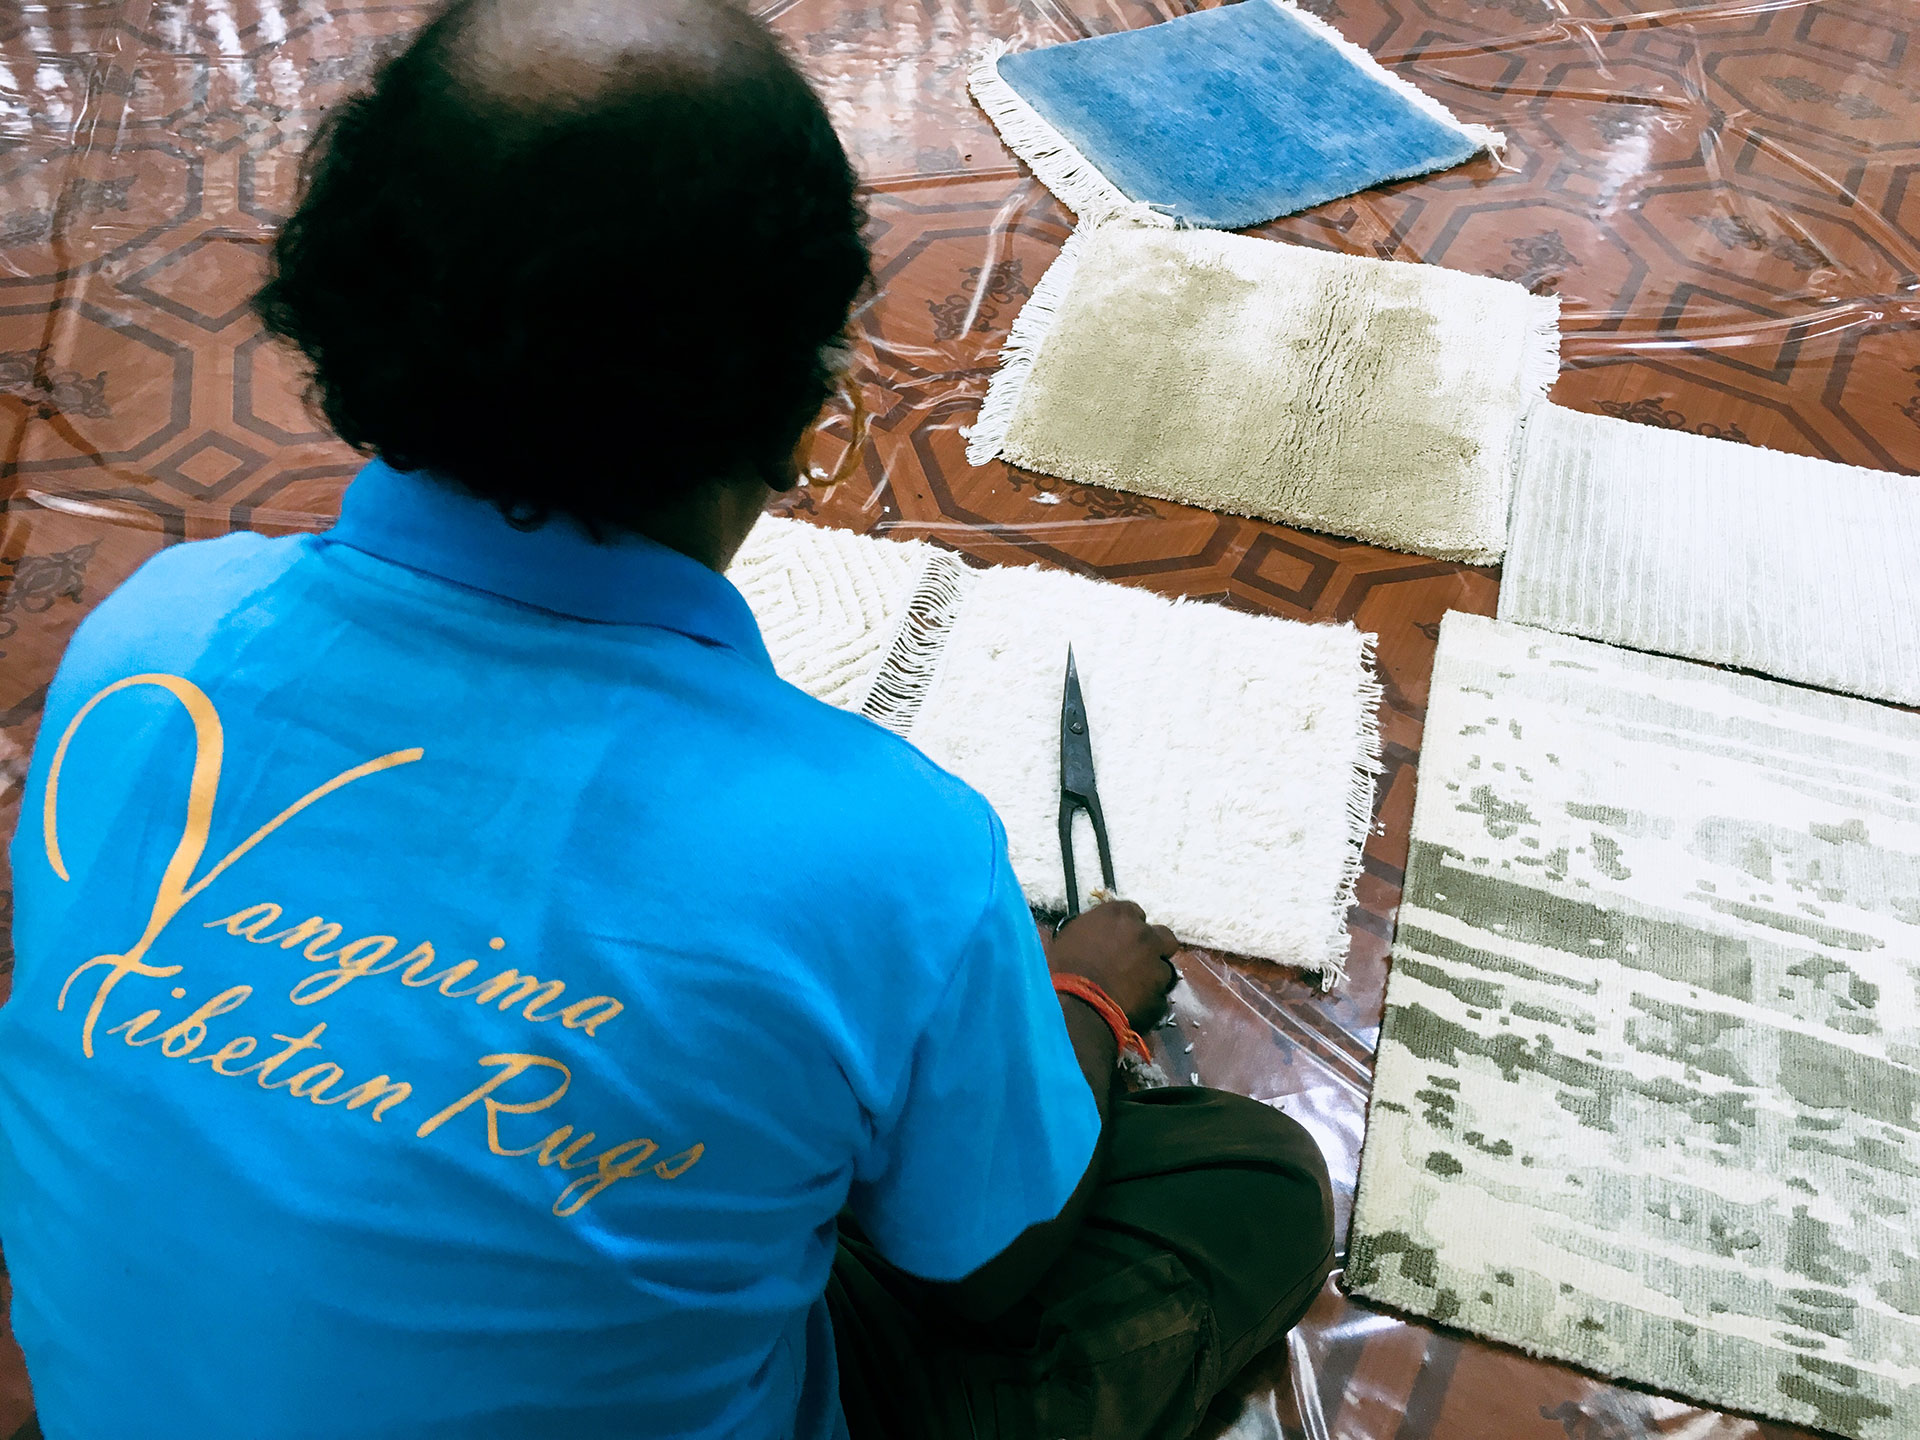 Vangrima
Tibetan Rugs